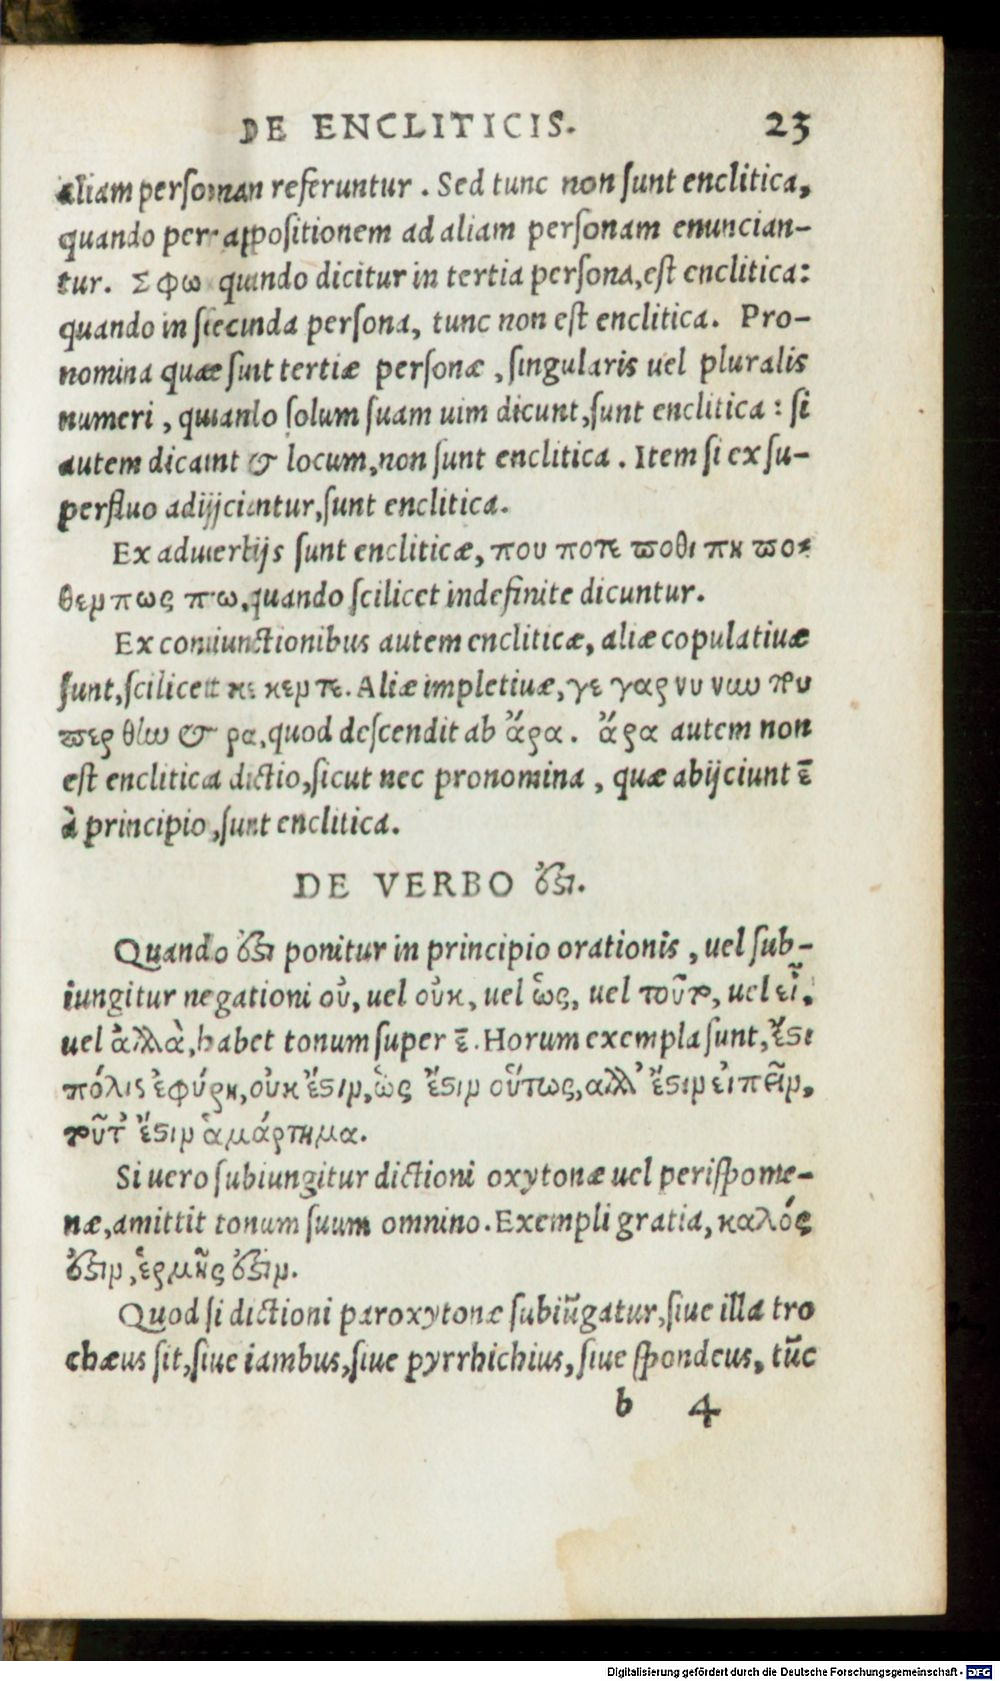 DE ENCLITICIS. 23
aliam personan referuntur . Sed tunc non sunt enclitica,
quando per appositionem ad aliam personam enuncian-
tur. Σφω quando dicitur in tertia persona, est enclitica:
quando in secunda persona, tunc non est enclitica. Pro-
nomina quae sunt tertiæ personæ , singularis uel pluralis
numeri , quando solum suam uim dicunt, sunt enclitica : si
autem dicant & locum, non sunt enclitica . Item si ex su-
perfluo adijciantur, sunt enclitica.
Ex aduerbijs sunt encliticæ, που ποτε ποθι πη πο-
θεν πως πω, quando scilicet indefinite dicuntur.
Ex coniunctionibus autem encliticæ, aliæ copulatiuæ
sunt, scilicet κε κεν τε. Aliæ impletiuæ, γε γαρ νυ νιω του
περ θἰω & ρα, quod descendit ab ἄρα. ἄρα autem non
est enclitica dictio, sicut nec pronomina , quæ abijciunt ε̄
à principio, sunt enclitica.
DE VERBO ὅτι.
Quando ὅτι ponitur in principio orationis , uel sub-
iungitur negationi οὐ, uel οὐκ, uel ὡς, uel τοῦτο, uel εἰ,
uel ἀλλὰ, habet tonum super ε̄. Horum exempla sunt, ἔστι
πόλις ἐφύρη, οὐκ ἔστιν, ὡς ἔστιν οὕτως, αλλ' ἔστιν εἰπεῖν,
τοῦτ' ἔστιν ἁμάρτημα.
Si uero subiungitur dictioni oxytonæ uel perispome-
næ, amittit tonum suum omnino. Exempli gratia, καλός
ἐστιν, ἑρμῆς ἐστιν.
Quod si dictioni paroxytonæ subiūgatur, siue illa tro
chæus sit, siue iambus, siue pyrrhichius, siue spondeus, tūc
b 4
Digitalisierung gefördert durch die Deutsche Forschungsgemeinschaft - DFG